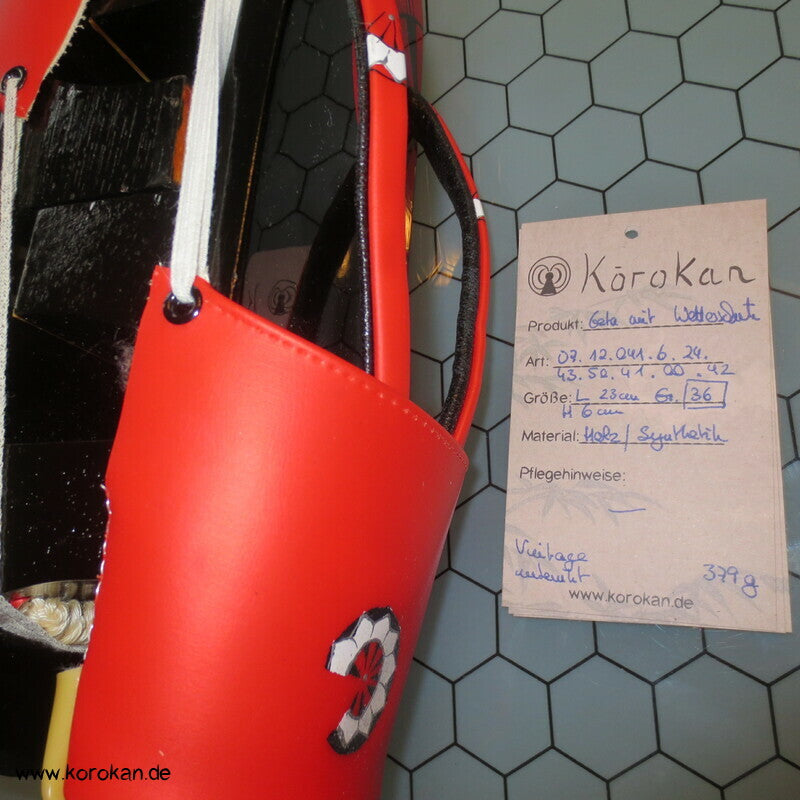 Kōrokan
Produkt: Geta mit Wetterschutz
Art: 07.12.041.6.24.
43.50.41.00.42
Größe: L 23cm Gr. 36
H 6cm
Material: Holz/Synthetik
Pflegehinweise:
—
Vintage
unbenutzt 379g
www.korokan.de
www.korokan.de